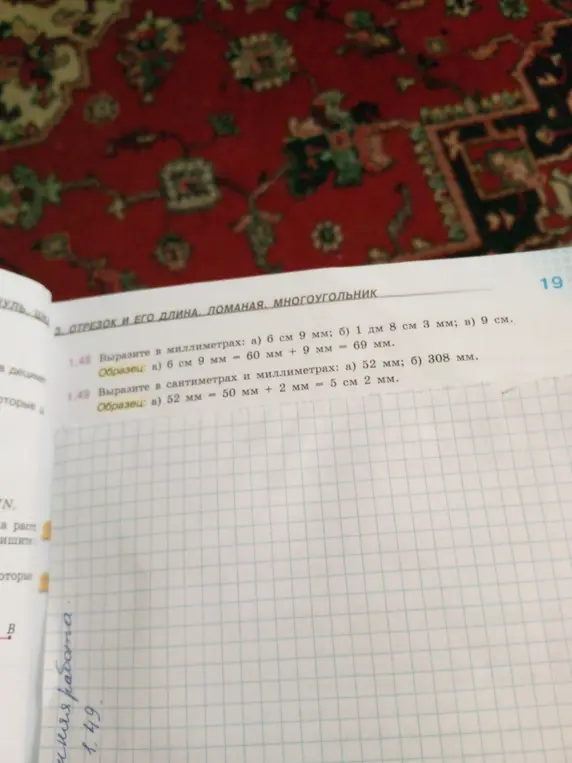 19
3. ОТРЕЗОК И ЕГО ДЛИНА. ЛОМАНАЯ. МНОГОУГОЛЬНИК
1.48 Выразите в миллиметрах: а) 6 см 9 мм; б) 1 дм 8 см 3 мм; в) 9 см.
Образец: а) 6 см 9 мм = 60 мм + 9 мм = 69 мм.
1.49 Выразите в сантиметрах и миллиметрах: а) 52 мм; б) 308 мм.
Образец: а) 52 мм = 50 мм + 2 мм = 5 см 2 мм.
N.
B
работа.
1.49.